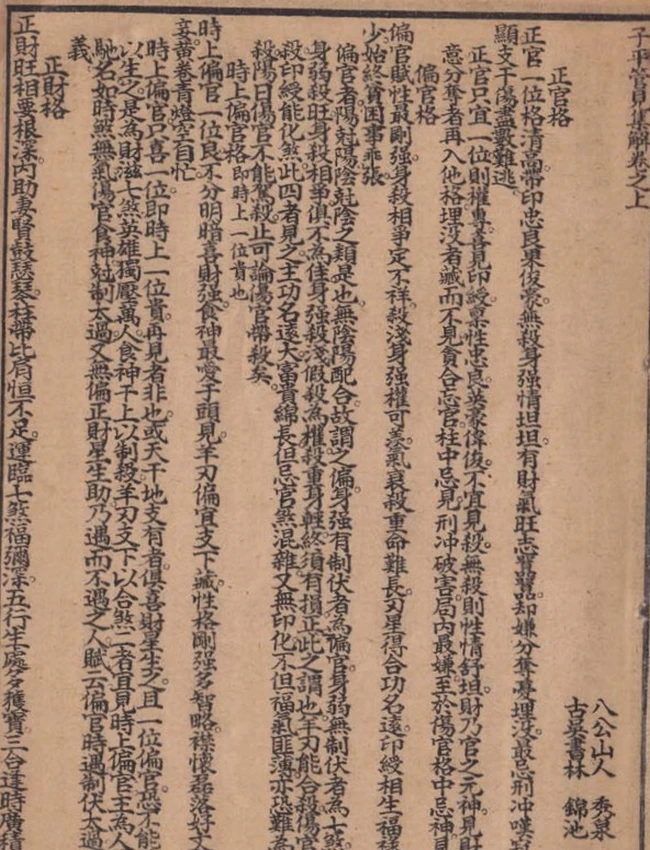 子平管見集解卷之上
八公山人 秀泉
古吳書林 錦池
正官格
正官一位格清高帶印忠良果俊豪無殺身強情坦坦有財氣旺志囂囂却嫌分奪憂埋沒最忌刑冲嘆
顯支干傷盡數難逃
正官只宜一位則權專喜見印綬稟性忠良英豪偉俊不宜見殺無殺則性情舒坦財乃官之元神見財
意分奪者再入他格埋沒者藏而不見貪合忘官柱中忌見刑冲破害局內最嫌至於傷官格中忌神見
偏官格
偏官賦性最剛強身殺相爭定不祥殺淺身強權可羨氣衰殺重命難長刃星得合功名遠印綬相生福
少始終貧困事乖張
偏官者陽尅陽陰尅陰之類是也無陰陽配合故謂之偏身強有制伏者為偏官身弱無制伏者為七煞
身弱殺旺身殺相爭俱不為佳身強殺淺假殺為權殺重身輕終須有損正此之謂也羊刃能合殺傷官
殺印綬能化煞此四者見之主功名遠大富貴綿長但忌官煞混雜又無印化不但福氣匪薄亦恐難為
殺陽日傷官不能駕殺止可論傷官帶殺矣
時上偏官格即時上一位貴也
時上偏官一位良不分明暗喜財強食神最愛干頭見羊刃偏宜支下藏性格剛強多智略襟懷磊落好文
妄黃卷青燈空自忙
時上偏官只喜一位即時上一位貴再見者非也或天干地支有者俱喜財星生之且一位偏官恐不能
以生之是為財滋七煞英雄獨壓萬人食神干上以制殺羊刃支下以合煞二者宜見時上偏官主為人
馳名如時煞無氣傷官食神尅制太過又無偏正財星生助乃遇而不遇之人賦云偏官時遇制伏太過
義
正財格
正財旺相要根深內助妻賢鼓瑟琴柱帶比肩恒不足運臨七煞福彌深五行生處多獲寶三合逢時廣積